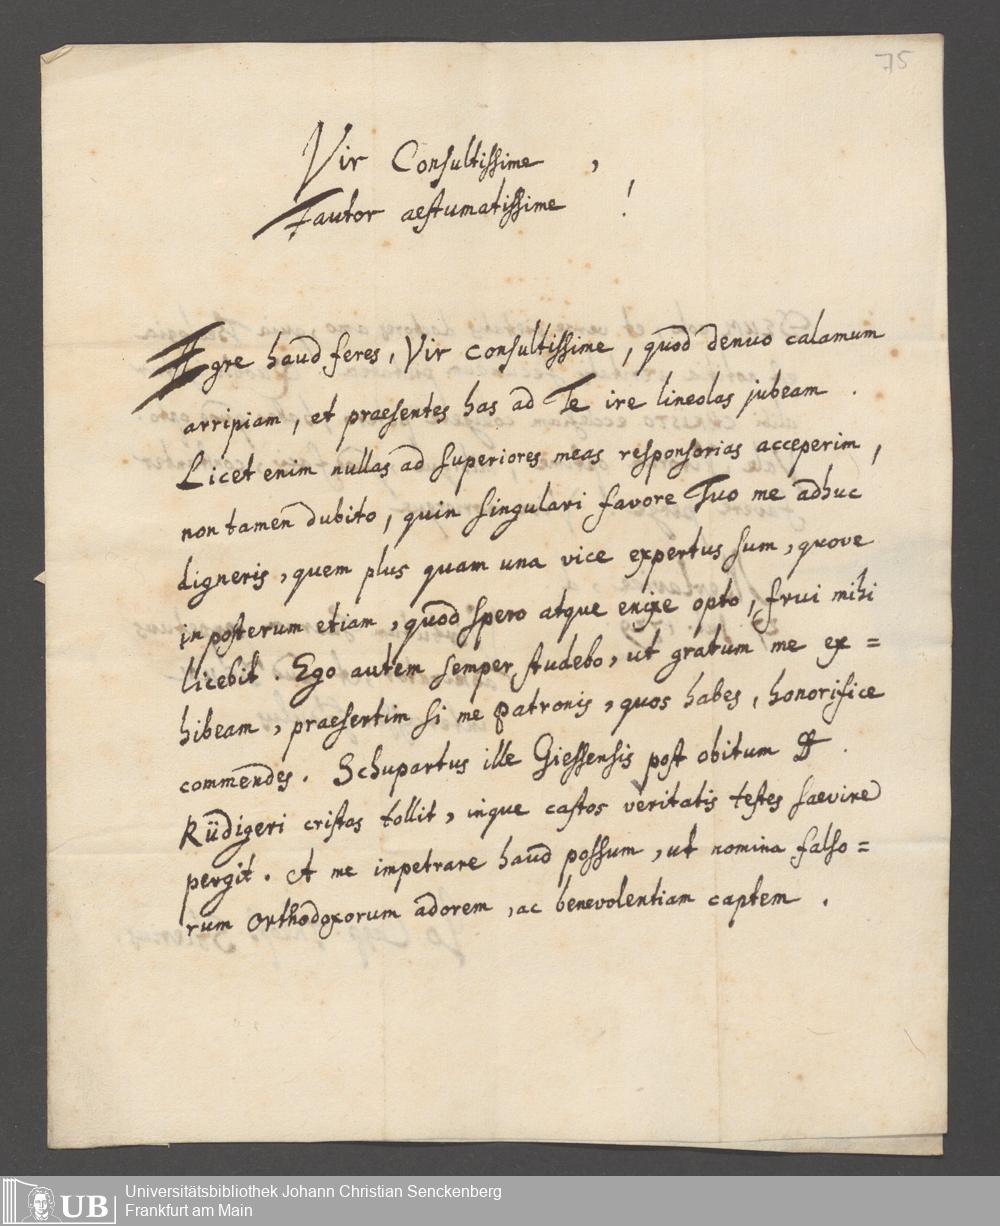 75
Vir Consultissime,
Fautor aestumatissime!
Aegre haud feres, Vir Consultissime, quod denuo calamum
arripiam, et praesentes has ad Te ire lineolas jubeam.
Licet enim nullas ad superiores meas responsorias acceperim,
non tamen dubito, quin singulari favore Tuo me adhuc
digneris, quem plus quam una vice expertus sum, quove
in posterum etiam, quod spero atque enixe opto, frui mihi
licebit. Ego autem semper studebo, ut gratum me ex=
hibeam, praesertim si me patronis, quos habes, honorifice
commendes. Schupartus ille Giessensis post obitum D.
Rüdigeri cristas tollit, inque castos veritatis testes saevire
pergit. A me impetrare haud possum, ut nomina falso=
rum orthodoxorum adorem, ac benevolentiam captem.
UB
Universitätsbibliothek Johann Christian Senckenberg
Frankfurt am Main